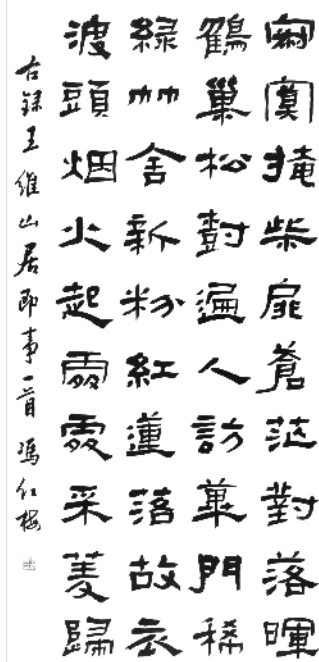 寂寞掩柴扉蒼茫對落暉
鶴巢松樹遍人訪蓽門稀
綠竹含新粉紅蓮落故衣
渡頭烟火起處處采菱歸
右録王維山居即事一首 馮红梅